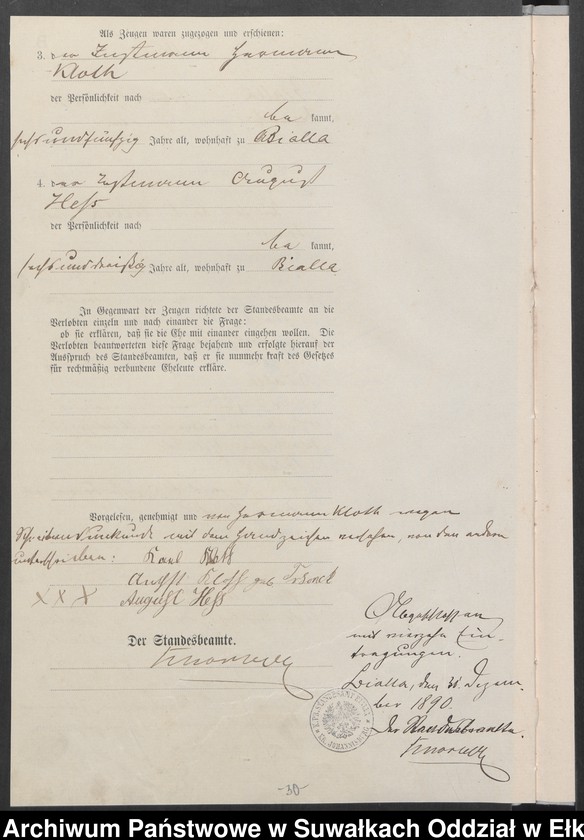 Als Zeugen waren zugezogen und erschienen:
3. der Instmann Hermann
Kloth
der Persönlichkeit nach
be kannt,
sechsundfünfzig Jahre alt, wohnhaft zu Bialla
4. der Instmann August
Hess
der Persönlichkeit nach
be kannt,
sechsunddreißig Jahre alt, wohnhaft zu Bialla
In Gegenwart der Zeugen richtete der Standesbeamte an die
Verlobten einzeln und nach einander die Frage:
ob sie erklären, daß sie die Ehe mit einander eingehen wollen. Die
Verlobten beantworteten diese Frage bejahend und erfolgte hierauf der
Ausspruch des Standesbeamten, daß er sie nunmehr kraft des Gesetzes
für rechtmäßig verbundene Eheleute erkläre.
Vorgelesen, genehmigt und von Hermann Kloth wegen
Schreibensunkunde mit dem Handzeichen versehen, von den andern
unterschrieben: Karl
geb
XXX August Hess
Der Standesbeamte.
Abgeschlossen
mit vierzehn Ein-
tragungen.
Bialla, den 31. Dezem-
ber 1890.
Der Standesbeamte.
-30-
Archiwum Państwowe w Suwałkach Oddział w Ełku